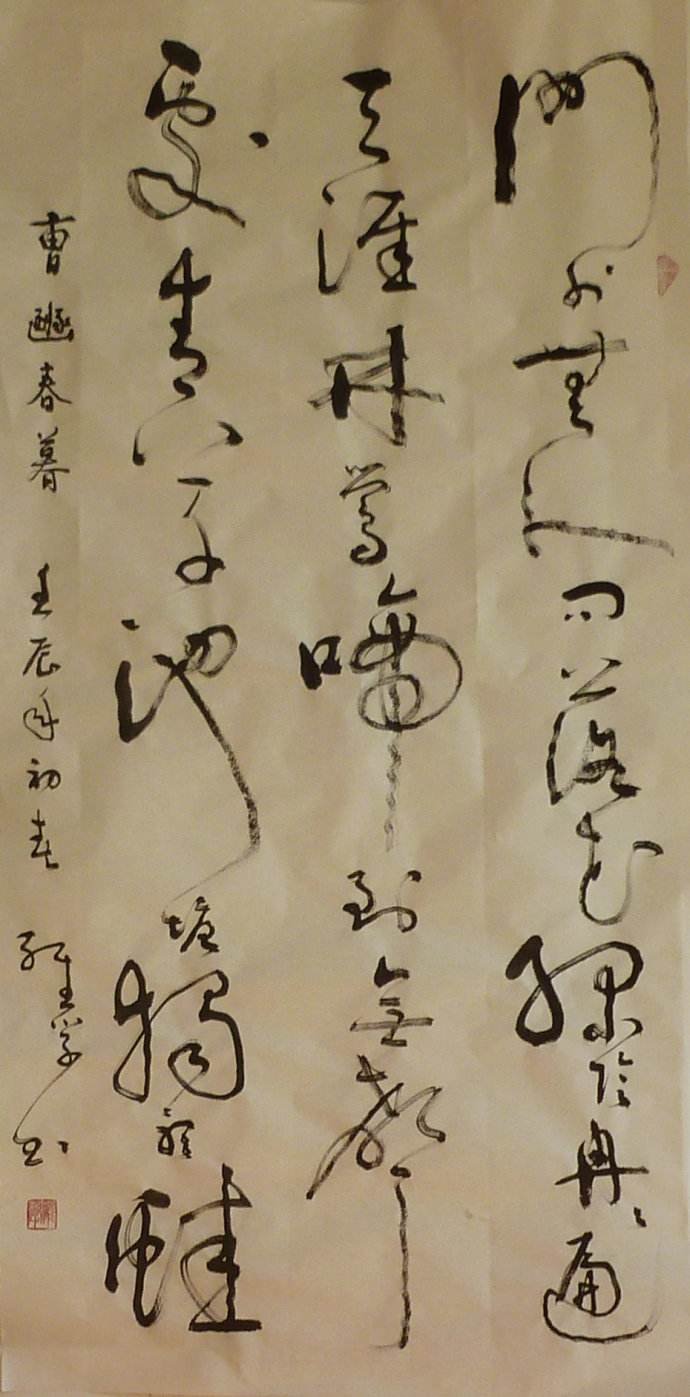 門外無人問落花綠陰冉〻遍
天涯林鶯啼到無聲
處青草池塘獨聽蛙
曹豳春暮 壬辰年初春 書